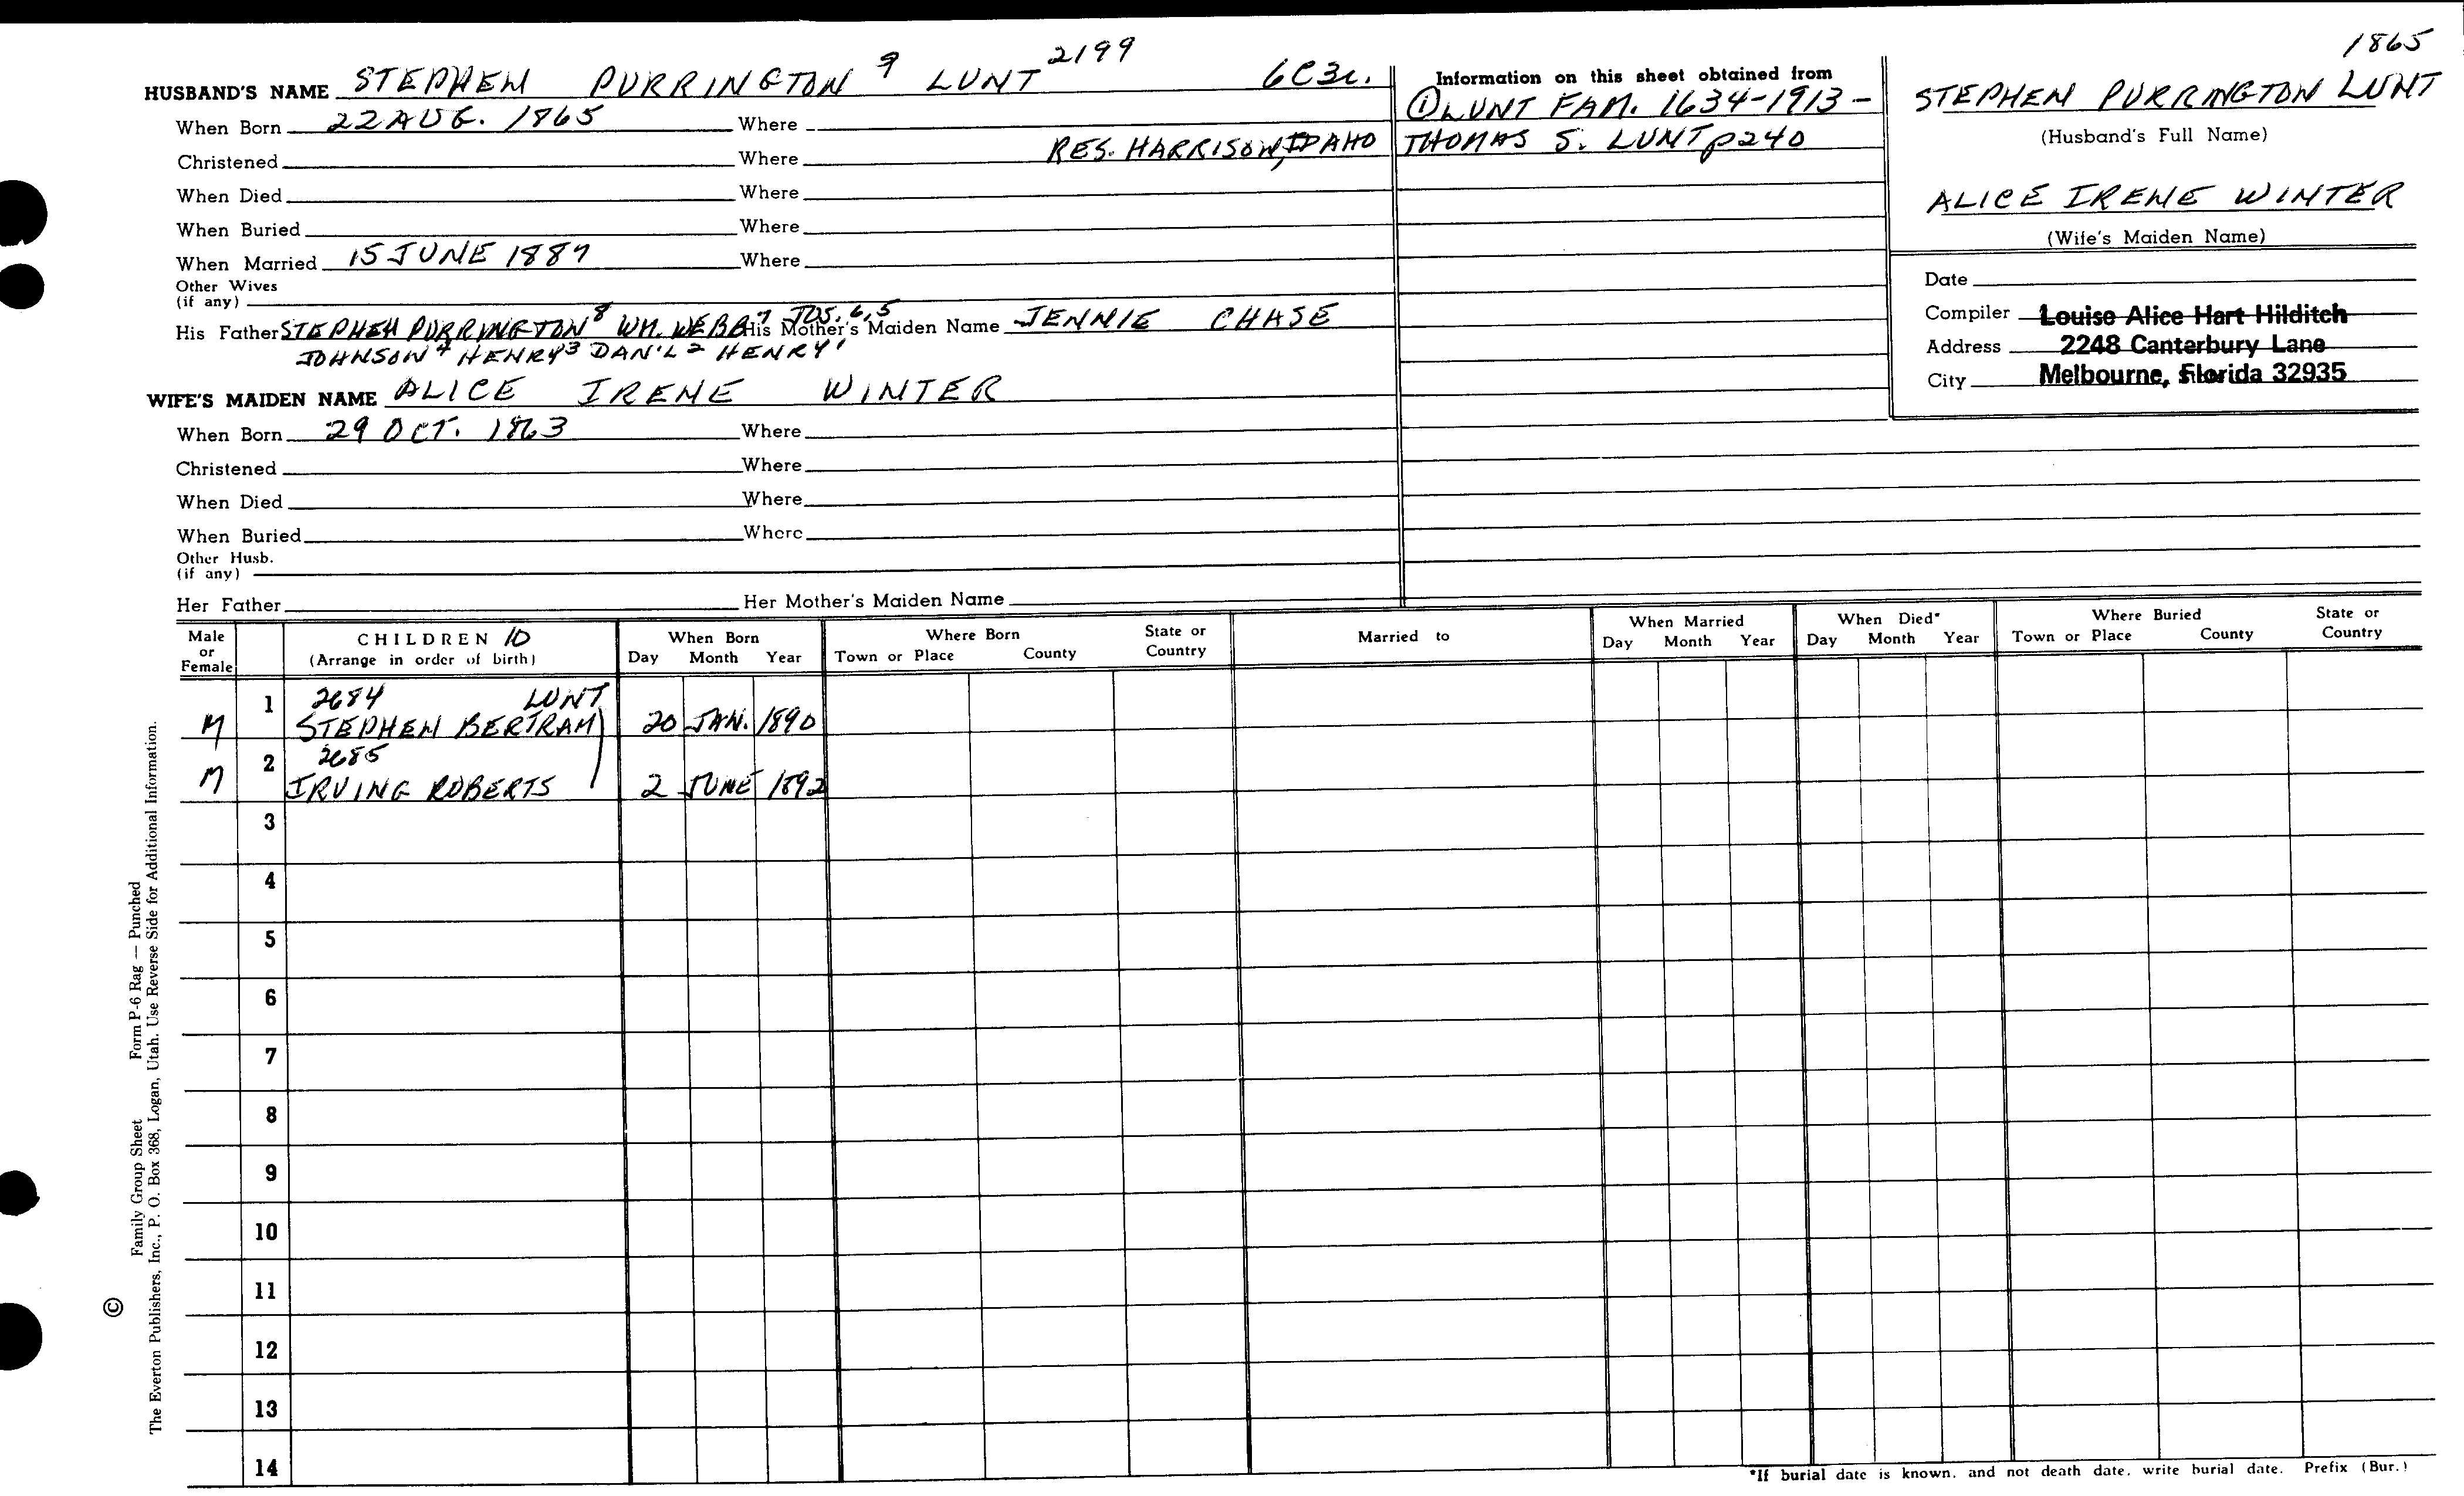 1865
HUSBAND'S NAME STEPHEN PURRINGTON 9 LUNT 2199 6C3r.
When Born 22 AUG. 1865 Where
Christened Where RES. HARRISON, IDAHO
When Died Where
When Buried Where
When Married 15 JUNE 1887 Where
Other Wives
(if any)
His Father STEPHEN PURRINGTON 8 WM. WEBB 7 JOS. 6,5 His Mother's Maiden Name JENNIE CHASE
JOHNSON 4 HENRY 3 DAN'L 2 HENRY 1
WIFE'S MAIDEN NAME ALICE IRENE WINTER
When Born 29 OCT. 1863 Where
Christened Where
When Died Where
When Buried Where
Other Husb.
(if any)
Her Father Her Mother's Maiden Name
Information on this sheet obtained from
① LUNT FAM. 1634-1913 -
THOMAS S. LUNT p240
STEPHEN PURRINGTON LUNT
(Husband's Full Name)
ALICE IRENE WINTER
(Wife's Maiden Name)
Date
Compiler Louise Alice Hart Hilditch
Address 2248 Canterbury Lane
City Melbourne, Florida 32935
Male or Female CHILDREN 10 (Arrange in order of birth) When Born Day Month Year Where Born Town or Place County State or Country Married to When Married Day Month Year When Died* Day Month Year Where Buried Town or Place County State or Country
1 2684 LUNT
M STEPHEN BERTRAM 20 JAN. 1890
2 2685
M IRVING ROBERTS 2 JUNE 1892
3
4
5
6
7
8
9
10
11
12
13
14
*If burial date is known, and not death date, write burial date. Prefix (Bur.)
© Family Group Sheet Form P-6 Rag — Punched
The Everton Publishers, Inc., P. O. Box 368, Logan, Utah. Use Reverse Side for Additional Information.